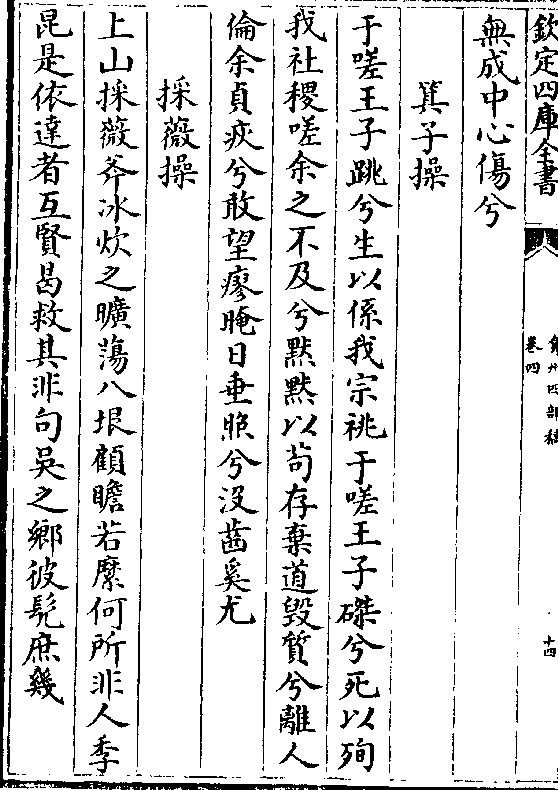 欽定四庫全書
弇州四部稿
卷四
十四
無成中心傷兮
箕子操
于嗟王子跳兮生以係我宗祧于嗟王子磔兮死以殉
我社稷嗟余之不及兮黙黙以苟存棄道毀質兮離人
倫余貞疢兮敢望瘳晻日垂照兮没齒奚尤
採薇操
上山採薇斧冰炊之曠蕩八垠顧瞻若縻何所非人季
昆是依違者互賢曷救其非句吳之鄉彼髡庶幾